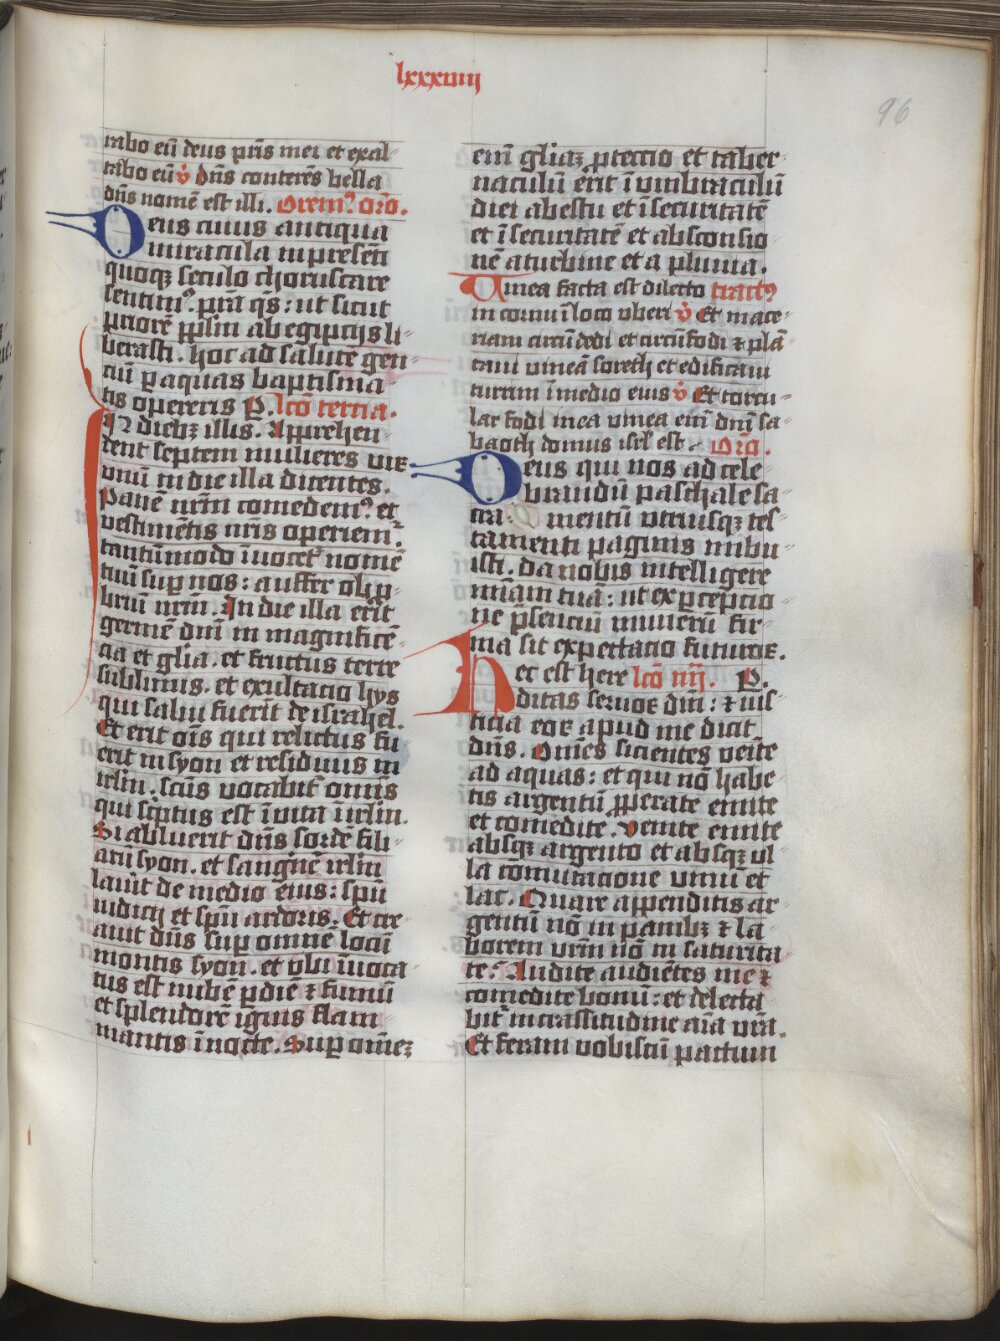 lxxxiiij
96
rabo eū deus pr̄is mei et exal
tabo eū v̄ dn̄s conterēs bella
dn̄s nomē est illi. Orem⁹ or̄o.
Deus cuius antiqua
miracula in presen̄ti
quoqꝫ seculo choruscare
sentim⁹. prā qs: ut sicut
priorē pplm̄ ab egiptijs li
berasti. hoc ad salutē gen
ciū p aquas baptisma
tis opereris P. lcō tercia.
IN diebꝫ illis. Apprehen
dent septem mulieres vir
unū in die illa dicentes.
Panē nrm̄ comedem⁹ et
vestimētis nr̄is operiem̄.
tantūmodo īuocet nomē
tuū sup nos: auffer obp
briū nrm̄. In die illa erit
germē dnī in magnificē
cia et gl̄ia. et fructus terre
sublimis. et exultacio hys
qui salui fuerit de israhel.
Et erit ōis qui relictus fu
erit in syon et residuus in
irlm̄. scūs vocabit omīs
qui scptus est ī vita ī irlm̄.
Si abluerit dn̄s sordē fili
arū syon. et sanguinē irlm̄
lauit de medio eius: spū
iudicij et spū ardoris. Et cre
auit dn̄s sup omnē locū
montis syon. et vbi īuoca
tus est nubē p diē ⁊ fumū
et splendorē ignis flam
mantis ī nocte. Sup omēꝫ
em̄ gl̄iaꝫ ptectio et taber
naculū erit ī vmbraculū
diei ab estu et ī securitatē
et ī securitatē et absconsio
nē a turbine et a pluuia.
Uinea facta est dilecto tract⁹
in cornu ī loco vberi v̄ Et mace
riam circū dedi et circūfodi ⁊ plā
taui vineā sorech et edificaui
turrim ī medio eius v̄ Et torcu
lar fodi in ea vinea em̄ dnī sa
baoth domus isrl̄ est. or̄o.
Deus qui nos ad cele
brandū paschale sa
cra mentū vtriusqꝫ tes
tamenti paginis inbu
isti. da nobis intelligere
mīam tuā: ut ex pcepcio
ne p̄senciū munerū fir
ma sit expectacio futuroꝝ.
Hec est here lcō iiij. P.
ditas seruoꝝ dnī: ⁊ ius
ticia eoꝝ apud me dicit
dn̄s. Omēs sicientes venite
ad aquas: et qui nō habe
tis argentū pperate emite
et comedite. Venite emite
absqꝫ argento et absqꝫ ul
la cōmutacione vinū et
lac. Quare appenditis ar
gentū nō in panibꝫ ⁊ la
borem vrm̄ nō in saturita
te. Audite audiētes me ⁊
comedite bonū: et delecta
bit in crassitudine aīa vrā.
Et feriam vobiscū pactum